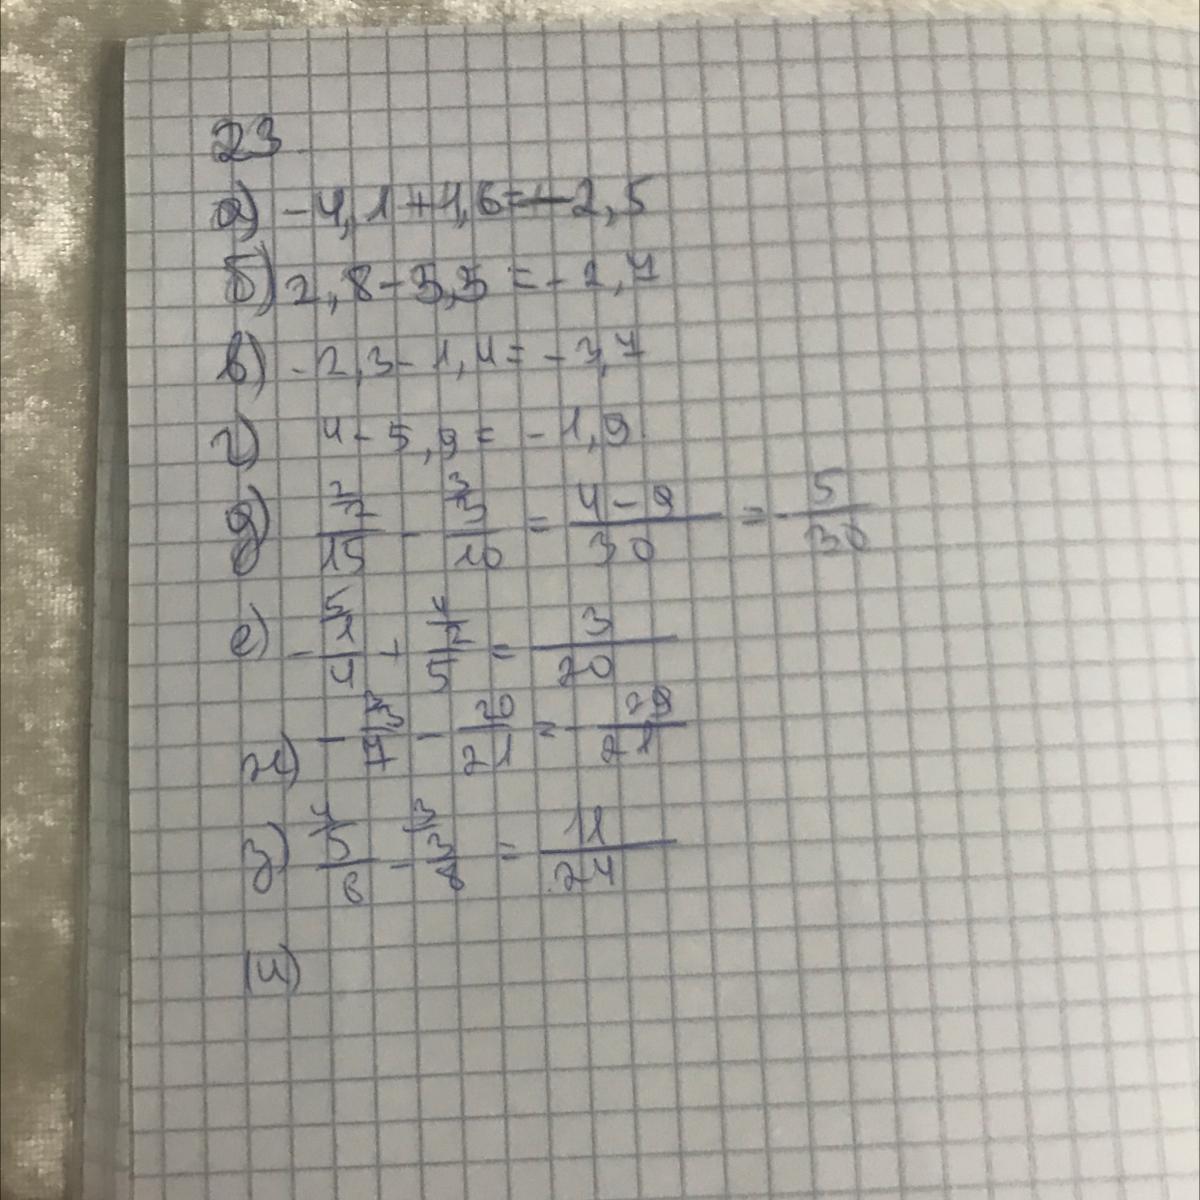 23
а) -4,1+1,6=-2,5
б) 2,8-5,5=-2,7
в) -2,3-1,4=-3,7
г) 4-5,9=-1,9
д) 2/15 - 3/10 = 4-9/30 = -5/30
е) -1/4 + 2/5 = 3/20
ж) -3/7 - 20/21 = -29/21
з) 5/6 - 3/8 = 11/24
и)